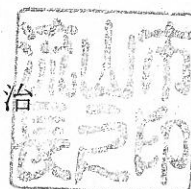 治
流山市
長之印